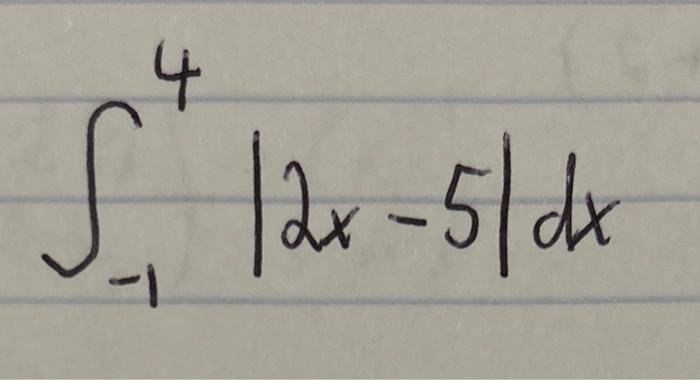 ∫₋₁⁴ |2x - 5| dx